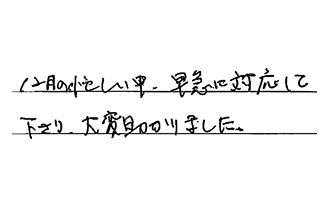 12月の忙しい中、早急に対応して
下さり、大変助かりました。